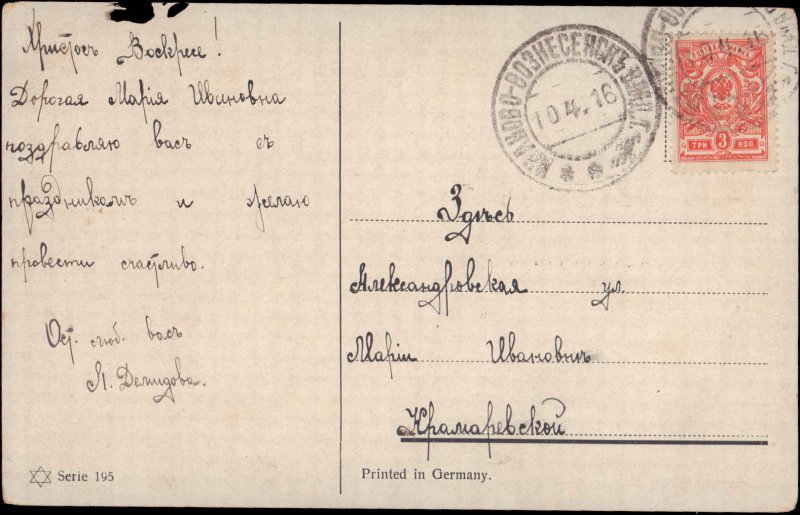 Христосъ Воскресе!
Дорогая Марія Ивановна
поздравляю васъ съ
праздникомъ и желаю
провести счастливо.
Ост. люб. васъ
Демидова.
Serie 195
ИВАНОВО-ВОЗНЕСЕНСКЪ ВЛАД. Г.
10.4.16
ТРИ 3 КОП.
Здѣсь
Александровская ул
Маріи Ивановнѣ
Крамаревской
Printed in Germany.